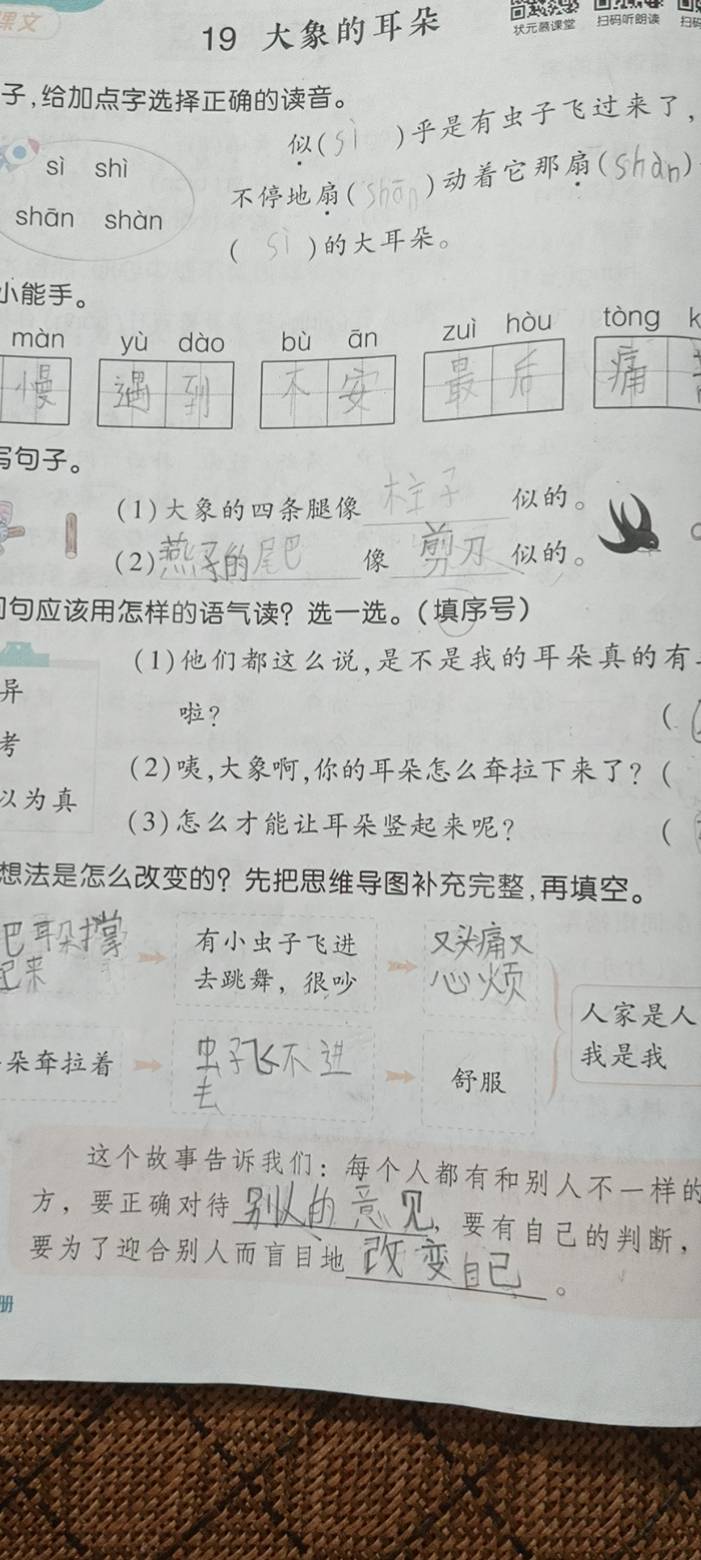 课文
19 大象的耳朵
状元慕课堂 扫码听朗读 扫码
子,给加点字选择正确的读音。
sì shì
shān shàn
似(sì)乎是有虫子飞过来了,
不停地扇(shān)动着它那扇(shàn)
(sì)的大耳朵。
小能手。
màn yù dào bù ān zuì hòu tòng k
慢 遇到 不安 最后 痛
写句子。
(1)大象的四条腿像柱子似的。
(2)燕子的尾巴像剪刀似的。
问句应该用怎样的语气读?选一选。(填序号)
异
考
以为真
(1)他们都这么说,是不是我的耳朵真的有
啦? (
(2)咦,大象啊,你的耳朵怎么耷拉下来了? (
(3)怎么才能让耳朵竖起来呢? (
想法是怎么改变的?先把思维导图补充完整,再填空。
把耳朵撑
起来
有小虫子飞进
去跳舞,很吵
又头痛又
心烦
朵耷拉着
虫子飞不进
去
舒服
人家是人
我是我
这个故事告诉我们:每个人都有和别人不一样的
方,要正确对待别人的意见,要有自己的判断,
要为了迎合别人而盲目地改变自己。
册